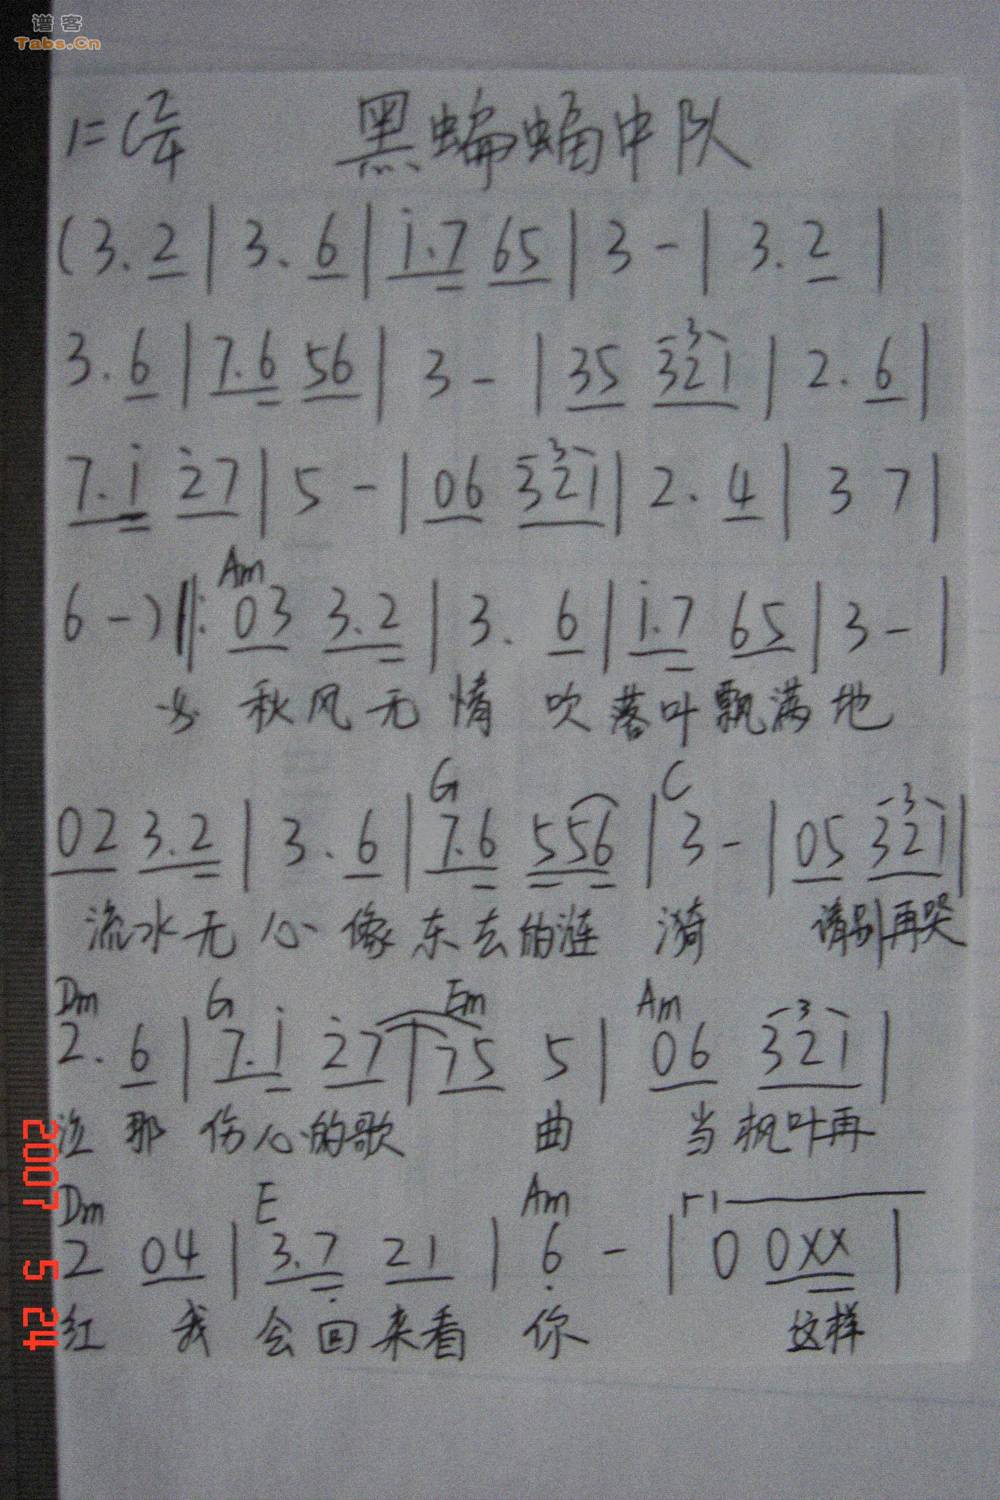 谱客
Tabs.Cn
1=C 2/4 黑蝙蝠中队
(3.2|3.6|i.7 65|3-|3.2|
3.6|7.6 56|3-|35 3 321|2.6|
7.i 27|5-|06 3 321|2.4|37|
Am
6-)‖: 03 3.2|3. 6|i.7 65|3-|
女 秋风无情 吹落叶飘满地
G C
02 3.2|3.6|7.6 556|3-|05 3 321|
流水无心像东去的涟漪 请别再哭
Dm G Em Am
2.6|7.i 27|75 5|06 3 321|
泣那伤心的歌曲 当枫叶再
Dm E Am 1
2 04|3.7 21|6-|0 0XX|
红 我会回来看你 这样
2007 5 24